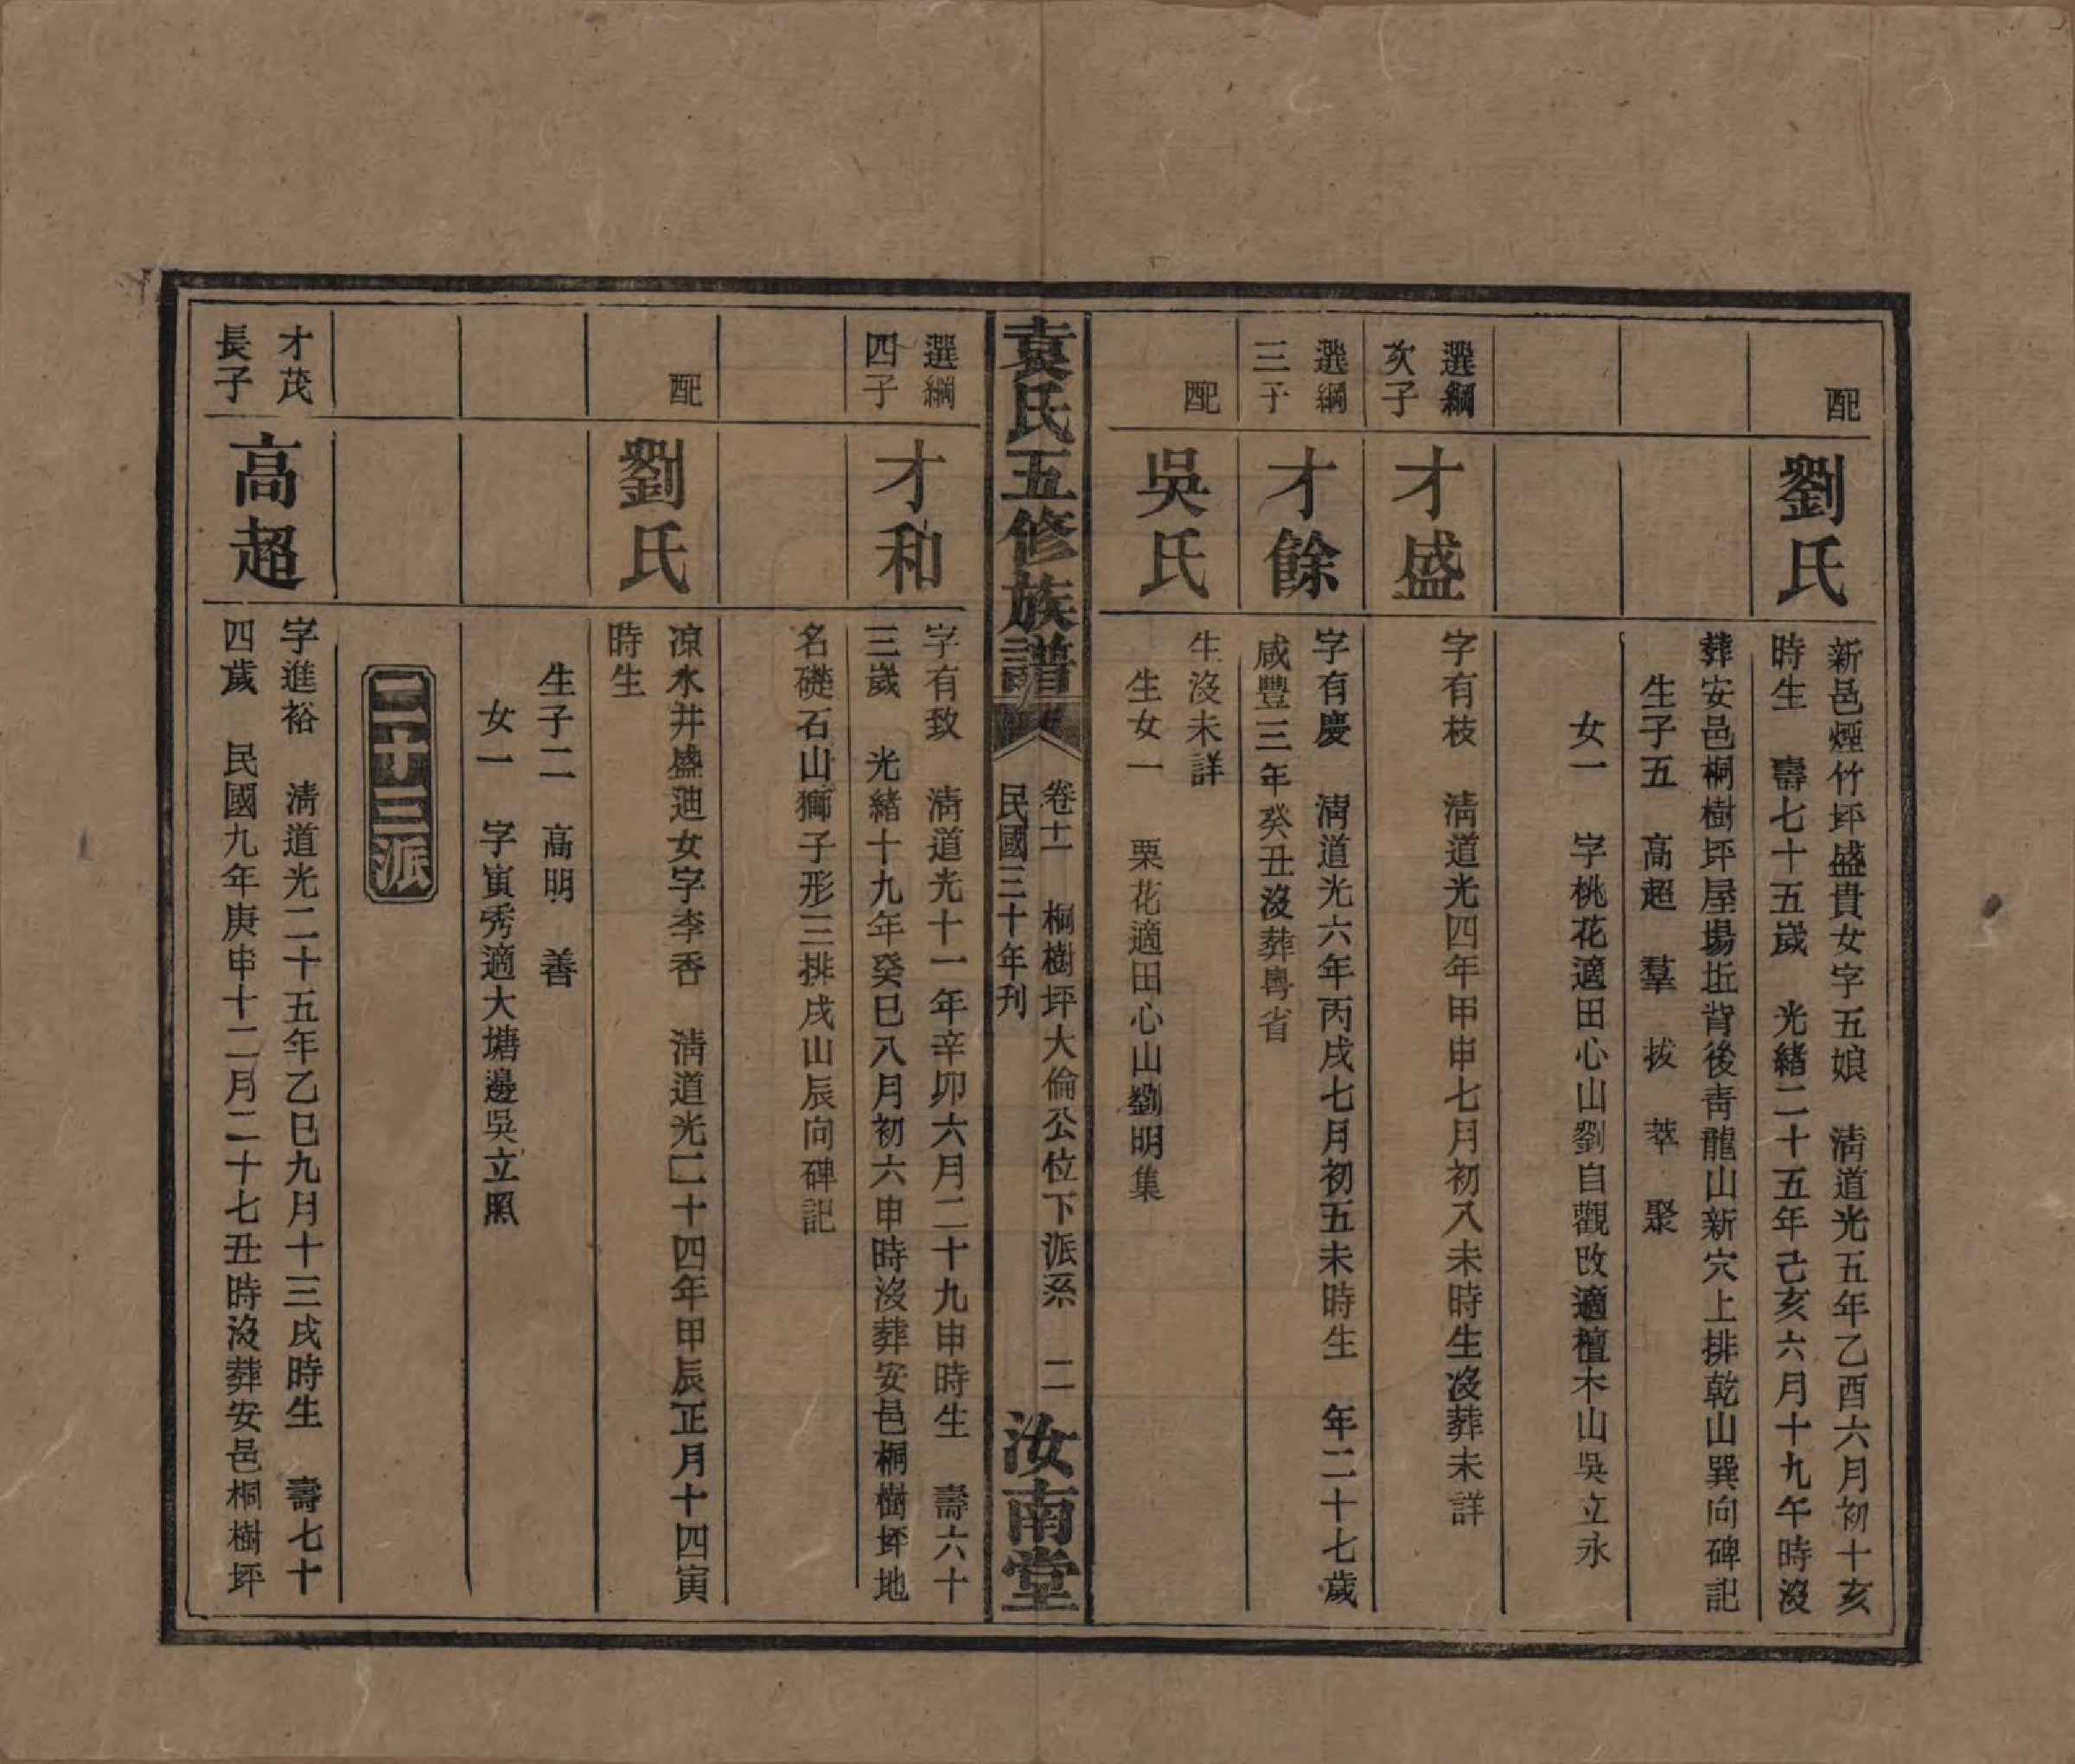 配
劉氏
新邑煙竹坪盛貴女字五娘　清道光五年乙酉六月初十亥
時生　壽七十五歲　光緒二十五年己亥六月十九午時沒
葬安邑桐樹坪屋場坵背後青龍山新穴上排乾山巽向碑記
生子五　高超　羣　拔　萃　聚
女一　字桃花適田心山劉自觀改適檀木山吳立永
選綱
次子
才盛
字有枝　清道光四年甲申七月初八未時生沒葬未詳
選綱
三子
才餘
字有慶　清道光六年丙戌七月初五未時生　年二十七歲
咸豐三年癸丑沒葬粵省
配
吳氏
生沒未詳
生女一　栗花適田心山劉明集
袁氏五修族譜
卷十一　桐樹坪大倫公位下派系　二
民國三十年刊
汝南堂
選綱
四子
才和
字有致　清道光十一年辛卯六月二十九申時生　壽六十
三歲　光緒十九年癸巳八月初六申時沒葬安邑桐樹坪地
名礎石山獅子形三排戌山辰向碑記
配
劉氏
凉水井盛迪女字李香　清道光二十四年甲辰正月十四寅
時生
生子二　高明　善
女一　字寅秀適大塘邊吳立照
二十三派
才茂
長子
高超
字進裕　清道光二十五年乙巳九月十三戌時生　壽七十
四歲　民國九年庚申十二月二十七丑時沒葬安邑桐樹坪